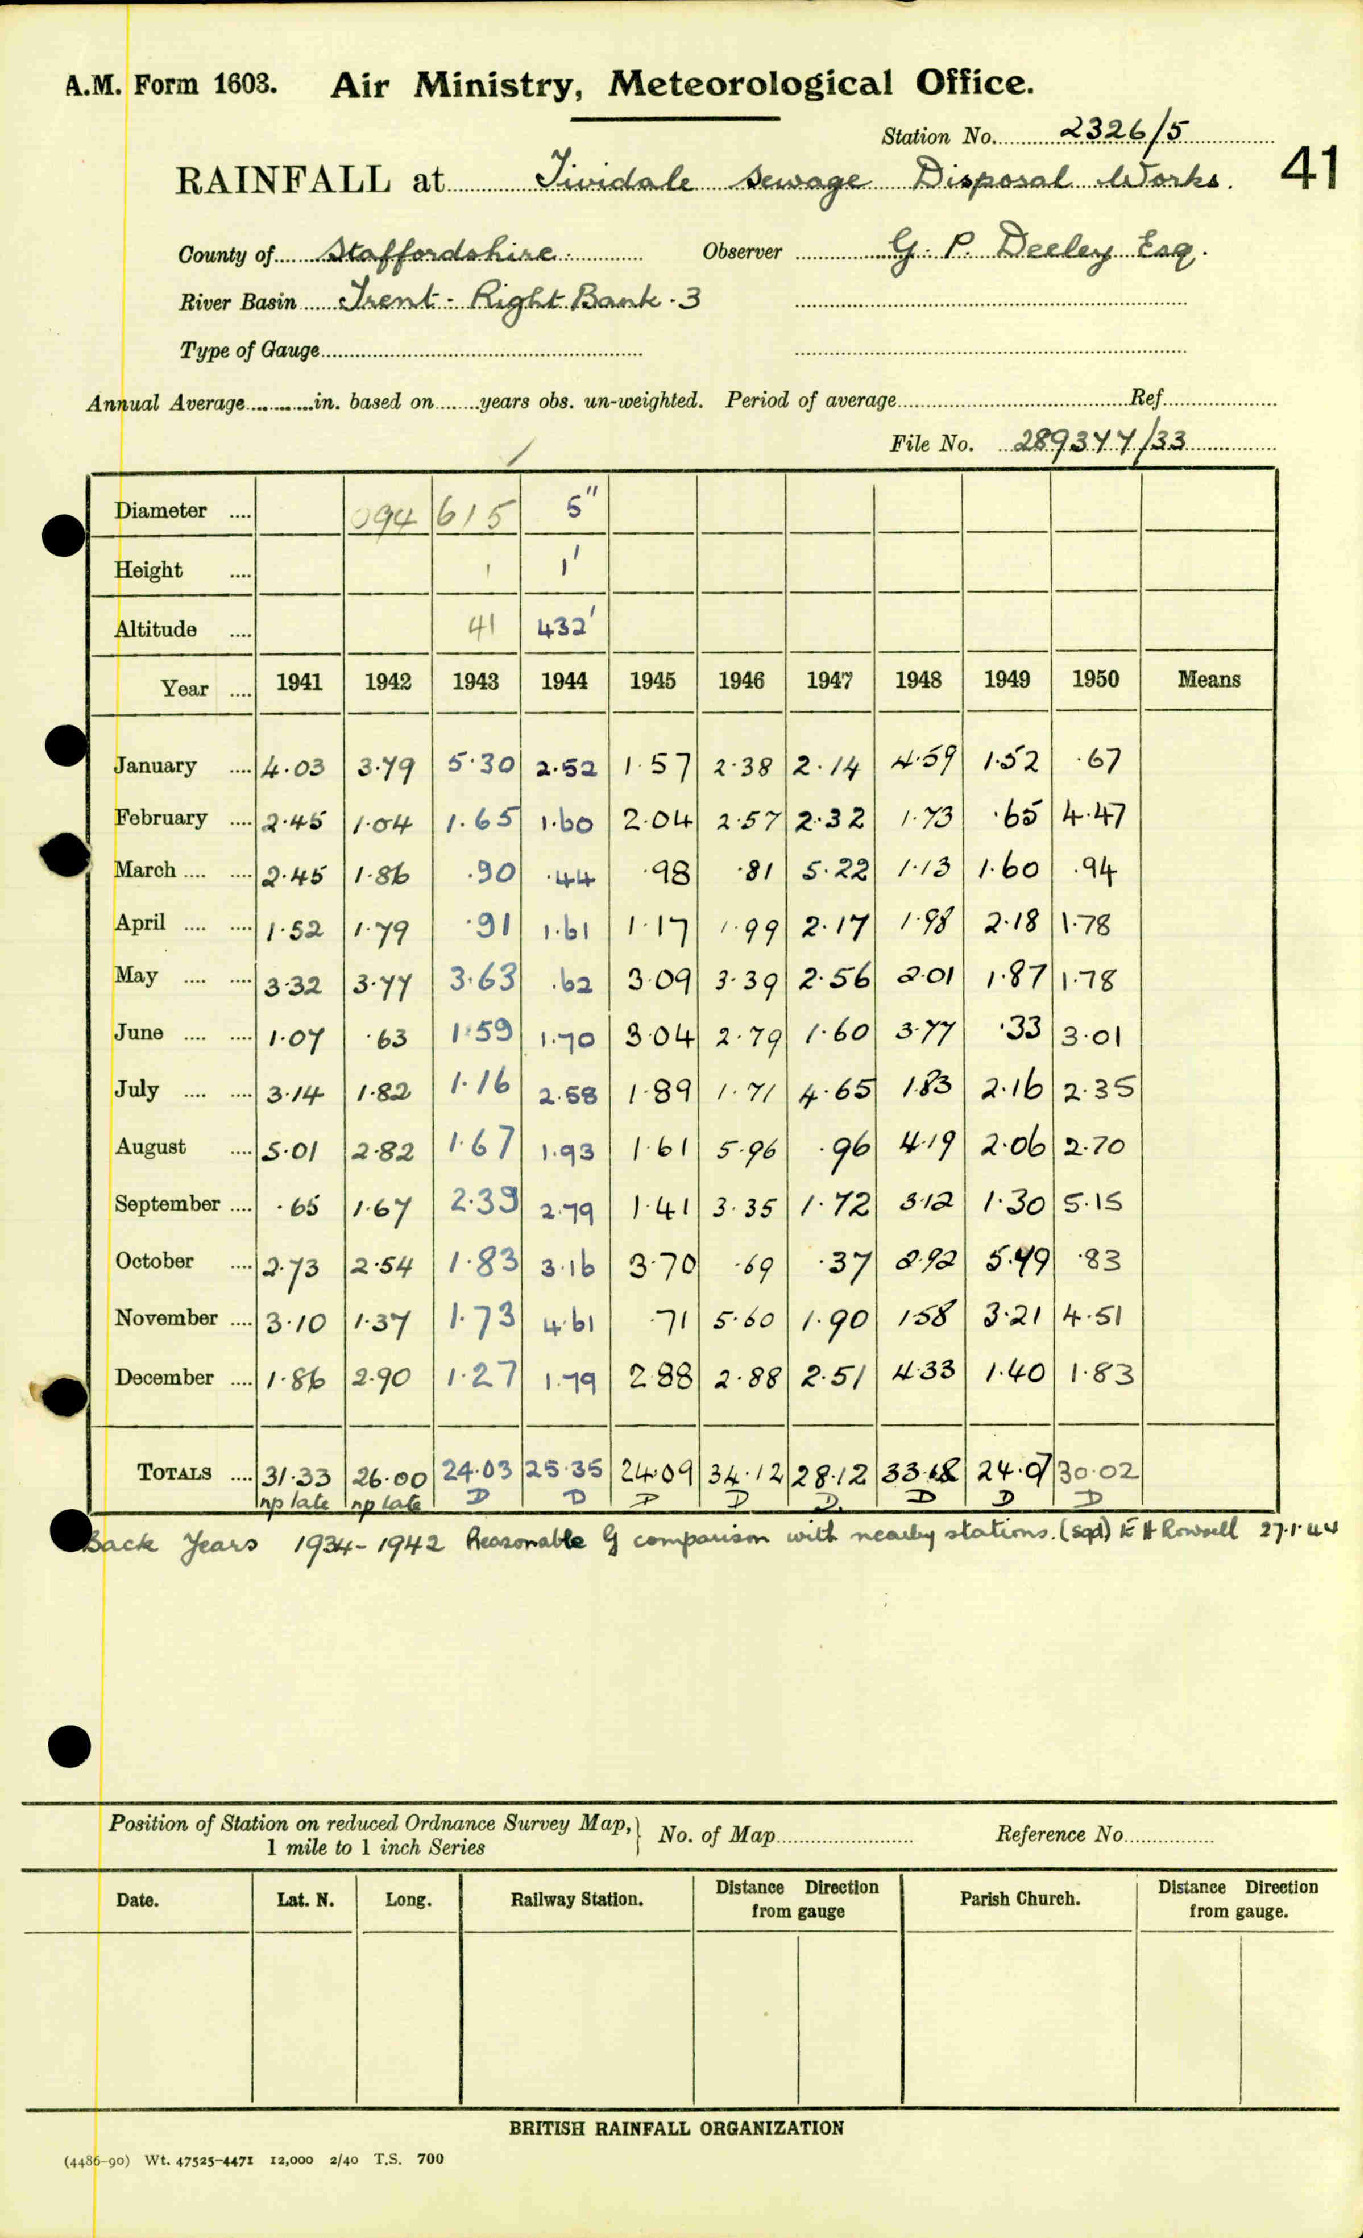 A.M. Form 1603. Air Ministry, Meteorological Office.
Station No. 2326/5
41
RAINFALL at Tividale Sewage Disposal Works.
County of Staffordshire. Observer G. P. Deeley Esq.
River Basin Trent - Right Bank . 3
Type of Gauge
Annual Average in. based on years obs. un-weighted. Period of average Ref.
File No. 289377/33
Diameter .... 094 615 5"
Height .... 1 1'
Altitude .... 41 432'
Year .... 1941 1942 1943 1944 1945 1946 1947 1948 1949 1950 Means
January .... 4.03 3.79 5.30 2.52 1.57 2.38 2.14 4.59 1.52 .67
February .... 2.45 1.04 1.65 1.60 2.04 2.57 2.32 1.73 .65 4.47
March .... .... 2.45 1.86 .90 .44 .98 .81 5.22 1.13 1.60 .94
April .... .... 1.52 1.79 .91 1.61 1.17 1.99 2.17 1.98 2.18 1.78
May .... .... 3.32 3.77 3.63 .62 3.09 3.39 2.56 2.01 1.87 1.78
June .... .... 1.07 .63 1.59 1.70 3.04 2.79 1.60 3.77 .33 3.01
July .... .... 3.14 1.82 1.16 2.58 1.89 1.71 4.65 1.83 2.16 2.35
August .... 5.01 2.82 1.67 1.93 1.61 5.96 .96 4.19 2.06 2.70
September .... .65 1.67 2.39 2.79 1.41 3.35 1.72 3.12 1.30 5.15
October .... 2.73 2.54 1.83 3.16 3.70 .69 .37 2.92 5.79 .83
November .... 3.10 1.37 1.73 4.61 .71 5.60 1.90 1.58 3.21 4.51
December .... 1.86 2.90 1.27 1.79 2.88 2.88 2.51 4.33 1.40 1.83
TOTALS .... 31.33 26.00 24.03 25.35 24.09 34.12 28.12 33.18 24.07 30.02
np late np late D D D D D D D D
Back Years 1934-1942 Reasonable by comparison with nearby stations. (sgd) E H Rowsell 27.1.44
Position of Station on reduced Ordnance Survey Map, } No. of Map Reference No.
1 mile to 1 inch Series
Date. Lat. N. Long. Railway Station. Distance Direction from gauge Parish Church. Distance Direction from gauge.
BRITISH RAINFALL ORGANIZATION
(4486-90) Wt. 47525-4471 12,000 2/40 T.S. 700